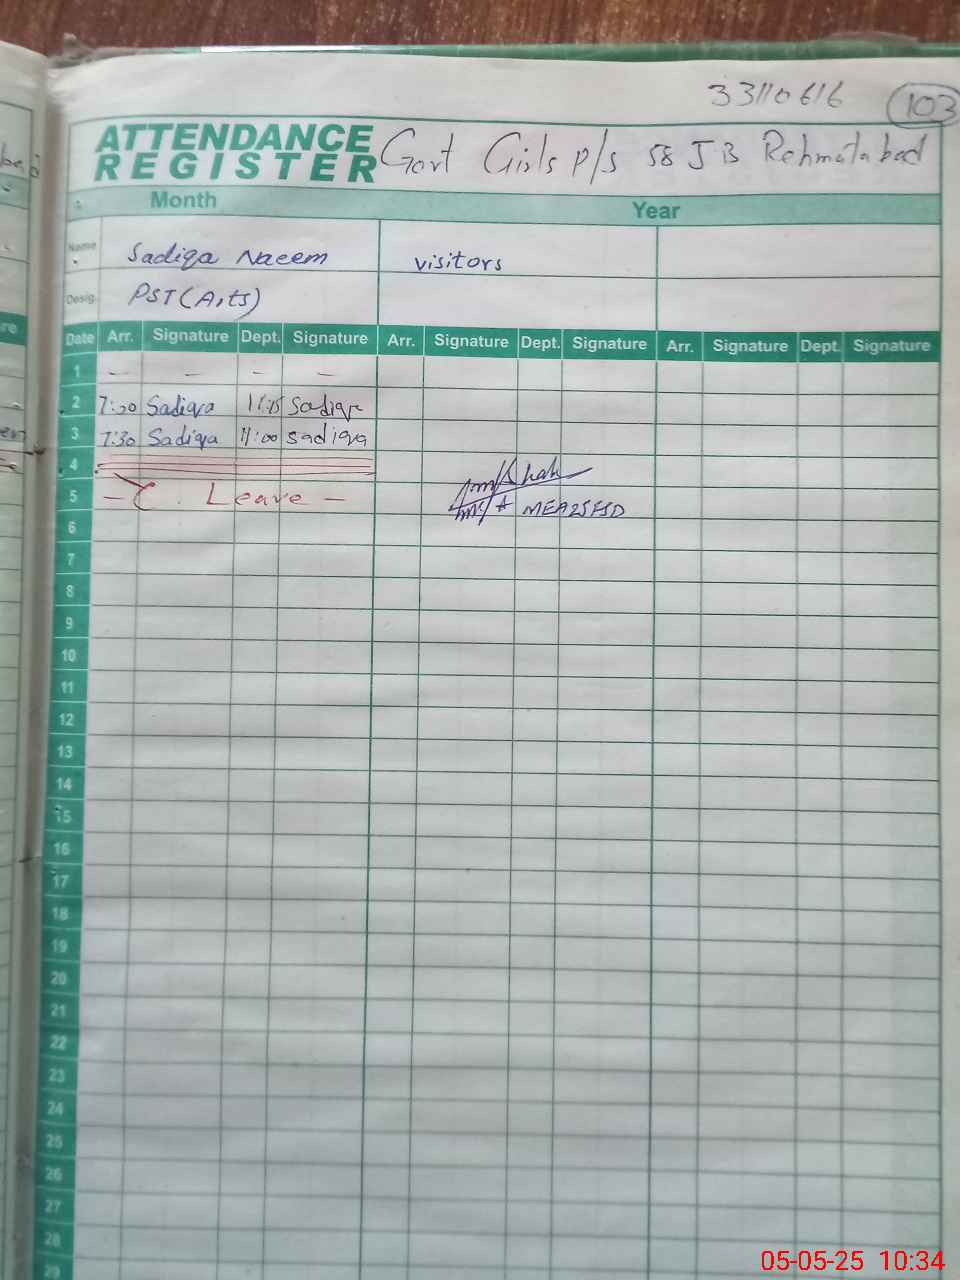 33110616 103
ATTENDANCE
REGISTER Govt Girls P/s 58 JB Rehmatabad
Month Year
Name Sadiqa Naeem visitors
Desig. PST(Arts)
Date Arr. Signature Dept. Signature Arr. Signature Dept. Signature Arr. Signature Dept. Signature
1 — — — —
2 7:20 Sadiqa Sadiqa
3 7:30 Sadiqa 11:00 Sadiqa
4
5 — C. Leave —
MEA25FSD
6
7
8
9
10
11
12
13
14
15
16
17
18
19
20
21
22
23
24
25
26
27
28
29
05-05-25 10:34